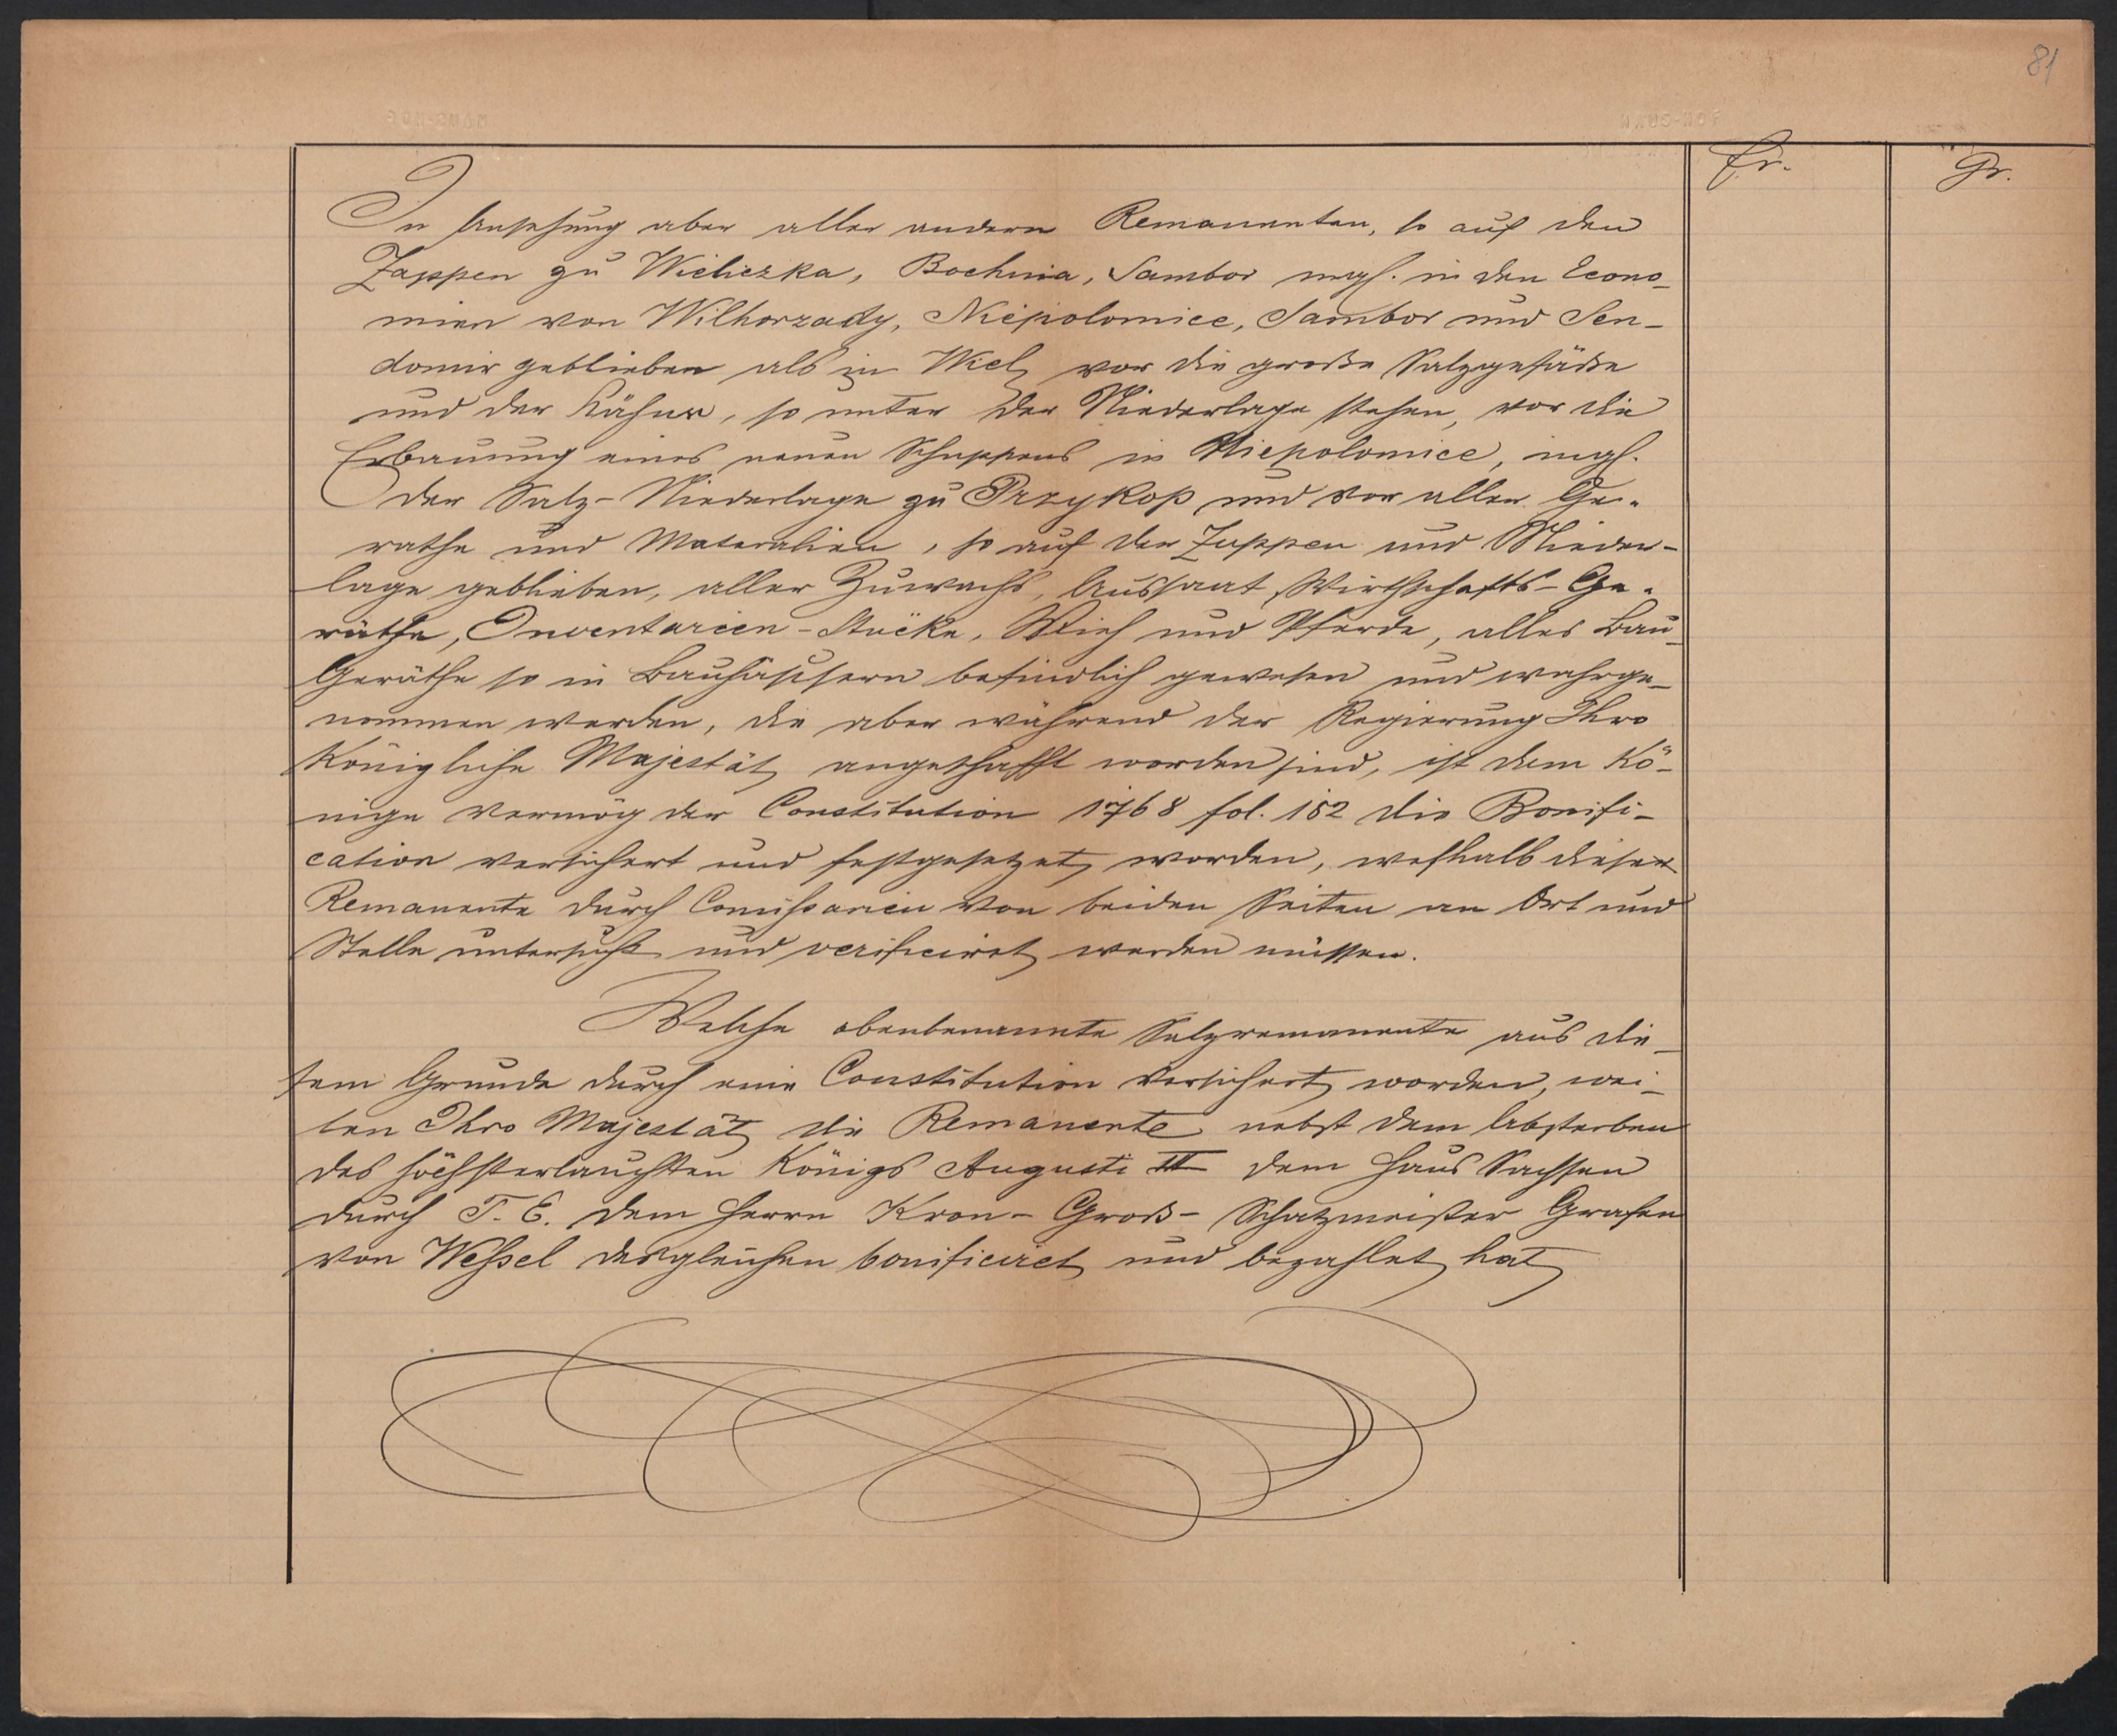 81
fr.
Gr.
In Ansehung aber aller andern Remanenten, so auf den
Zappen zu Wieliczka, Bochnia, Sambor ingl. in den Econo-
mien von Wilhorzady, Niepolomice, Sambor und Sen-
domir geblieben als in Wiel. vor die große Salzgefäße
und der Kähne, so unter der Niederlage stehen, vor die
Erbauung eines neuen Schuppens in Niepolomice, ingl.
der Salz-Niederlage zu Przykop und vor allen Ge-
rathe und Materalien, so auf der Zuppen und Nieder-
lage geblieben, aller Zuwachs, Aussaat, Wirthschafts-Ge-
räthe, Inventarien-Stücke, Vieh und Pferde, alles Bau-
Geräthe so in Bauhäusern befindlich gewesen und wahrge-
nommen werden, die aber während der Regierung Ihro
Königliche Majestät angeschafft worden sind, ist dem Kö-
nige vermög der Constitution 1768 fol. 182 die Bonifi-
cation versichert und festgesetzet worden, weshalb diese
Remanente durch Comissarien von beiden Seiten an Ort und
Stelle untersucht und verificiret werden müssen.
Welche obenbenannte Salzremanente aus die-
sem Grunde durch eine Constitution versichert worden, wei-
len Ihro Majestät die Remanente nebst dem Absterben
des höchsterlauchten Königs Augusti III dem Haus Sachsen
durch S. E. dem Herrn Kron-Groß-Schatzmeister Grafen
von Weßel desgleichen bonificiret und bezahlet hat